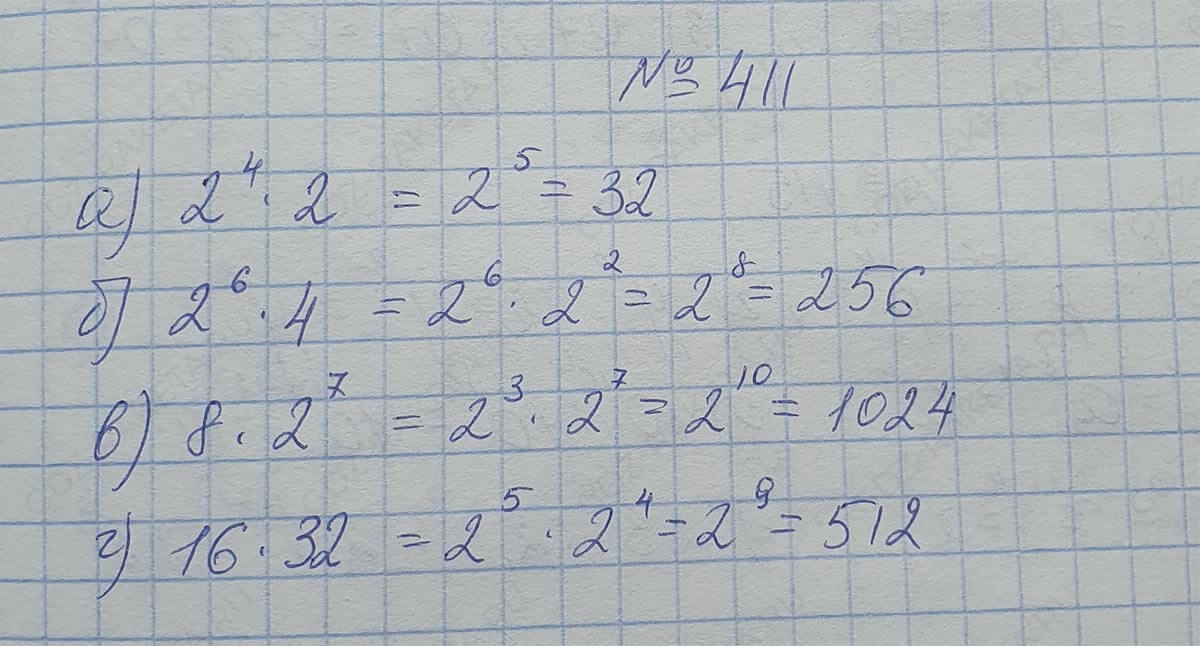 № 411
а) 2⁴ · 2 = 2⁵ = 32
б) 2⁶ · 4 = 2⁶ · 2² = 2⁸ = 256
в) 8 · 2⁷ = 2³ · 2⁷ = 2¹⁰ = 1024
г) 16 · 32 = 2⁵ · 2⁴ = 2⁹ = 512